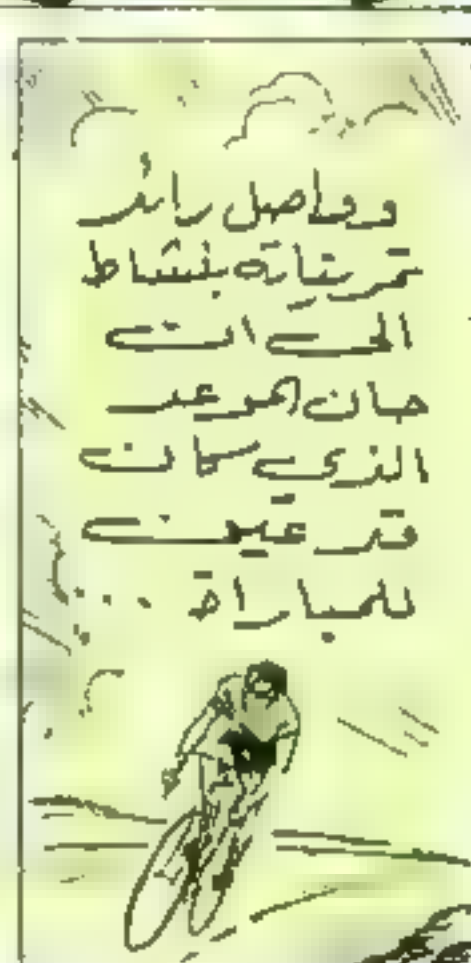 وواصل رائد
تمريناته بنشاط
الى ان
حان الموعد
الذي كان
قد عين
للمباراة ...